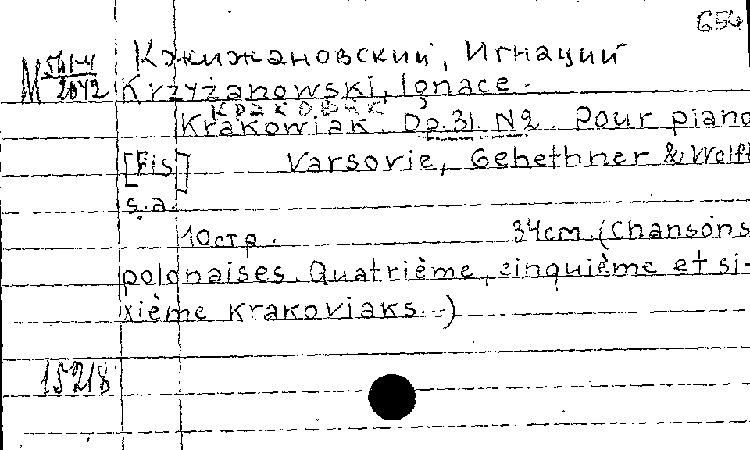 654
М 541-4/2042
Кжижановский, Игнаций
Krzyżanowski, Ignace.
Краковяк
Krakowiak. Op. 31. N2. Pour piano
[Fis] Varsovie, Gebethner & Wolff
s.a.
10 стр. 34 cm. (Chansons
polonaises. Quatrième, cinquième et si-
xième krakoviaks.)
15218